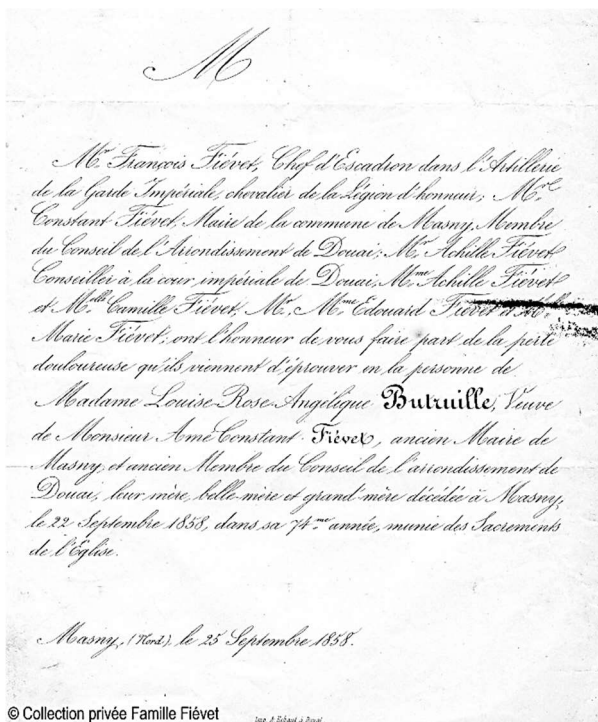 M
Mr. François Fiévet, Chef d'Escadron dans l'Artillerie
de la Garde Impériale, chevalier de la Légion d'honneur; Mr.
Constant Fiévet, Maire de la commune de Masny, Membre
du Conseil de l'Arrondissement de Douai; Mr. Achille Fiévet
Conseiller à la cour impériale de Douai, Mme. Achille Fiévet
et Melle. Camille Fiévet, Mr. Mme. Edouard Fiévet et
Marie Fiévet; ont l'honneur de vous faire part de la perte
douloureuse qu'ils viennent d'éprouver en la personne de
Madame Louise Rose Angélique Butruille, Veuve
de Monsieur Amé Constant Fiévet, ancien Maire de
Masny, et ancien Membre du Conseil de l'arrondissement de
Douai, leur mère, belle-mère et grand-mère décédée à Masny,
le 22 Septembre 1858, dans sa 74.me année, munie des Sacrements
de l'Eglise.
Masny, (Nord), le 25 Septembre 1858.
© Collection privée Famille Fiévet